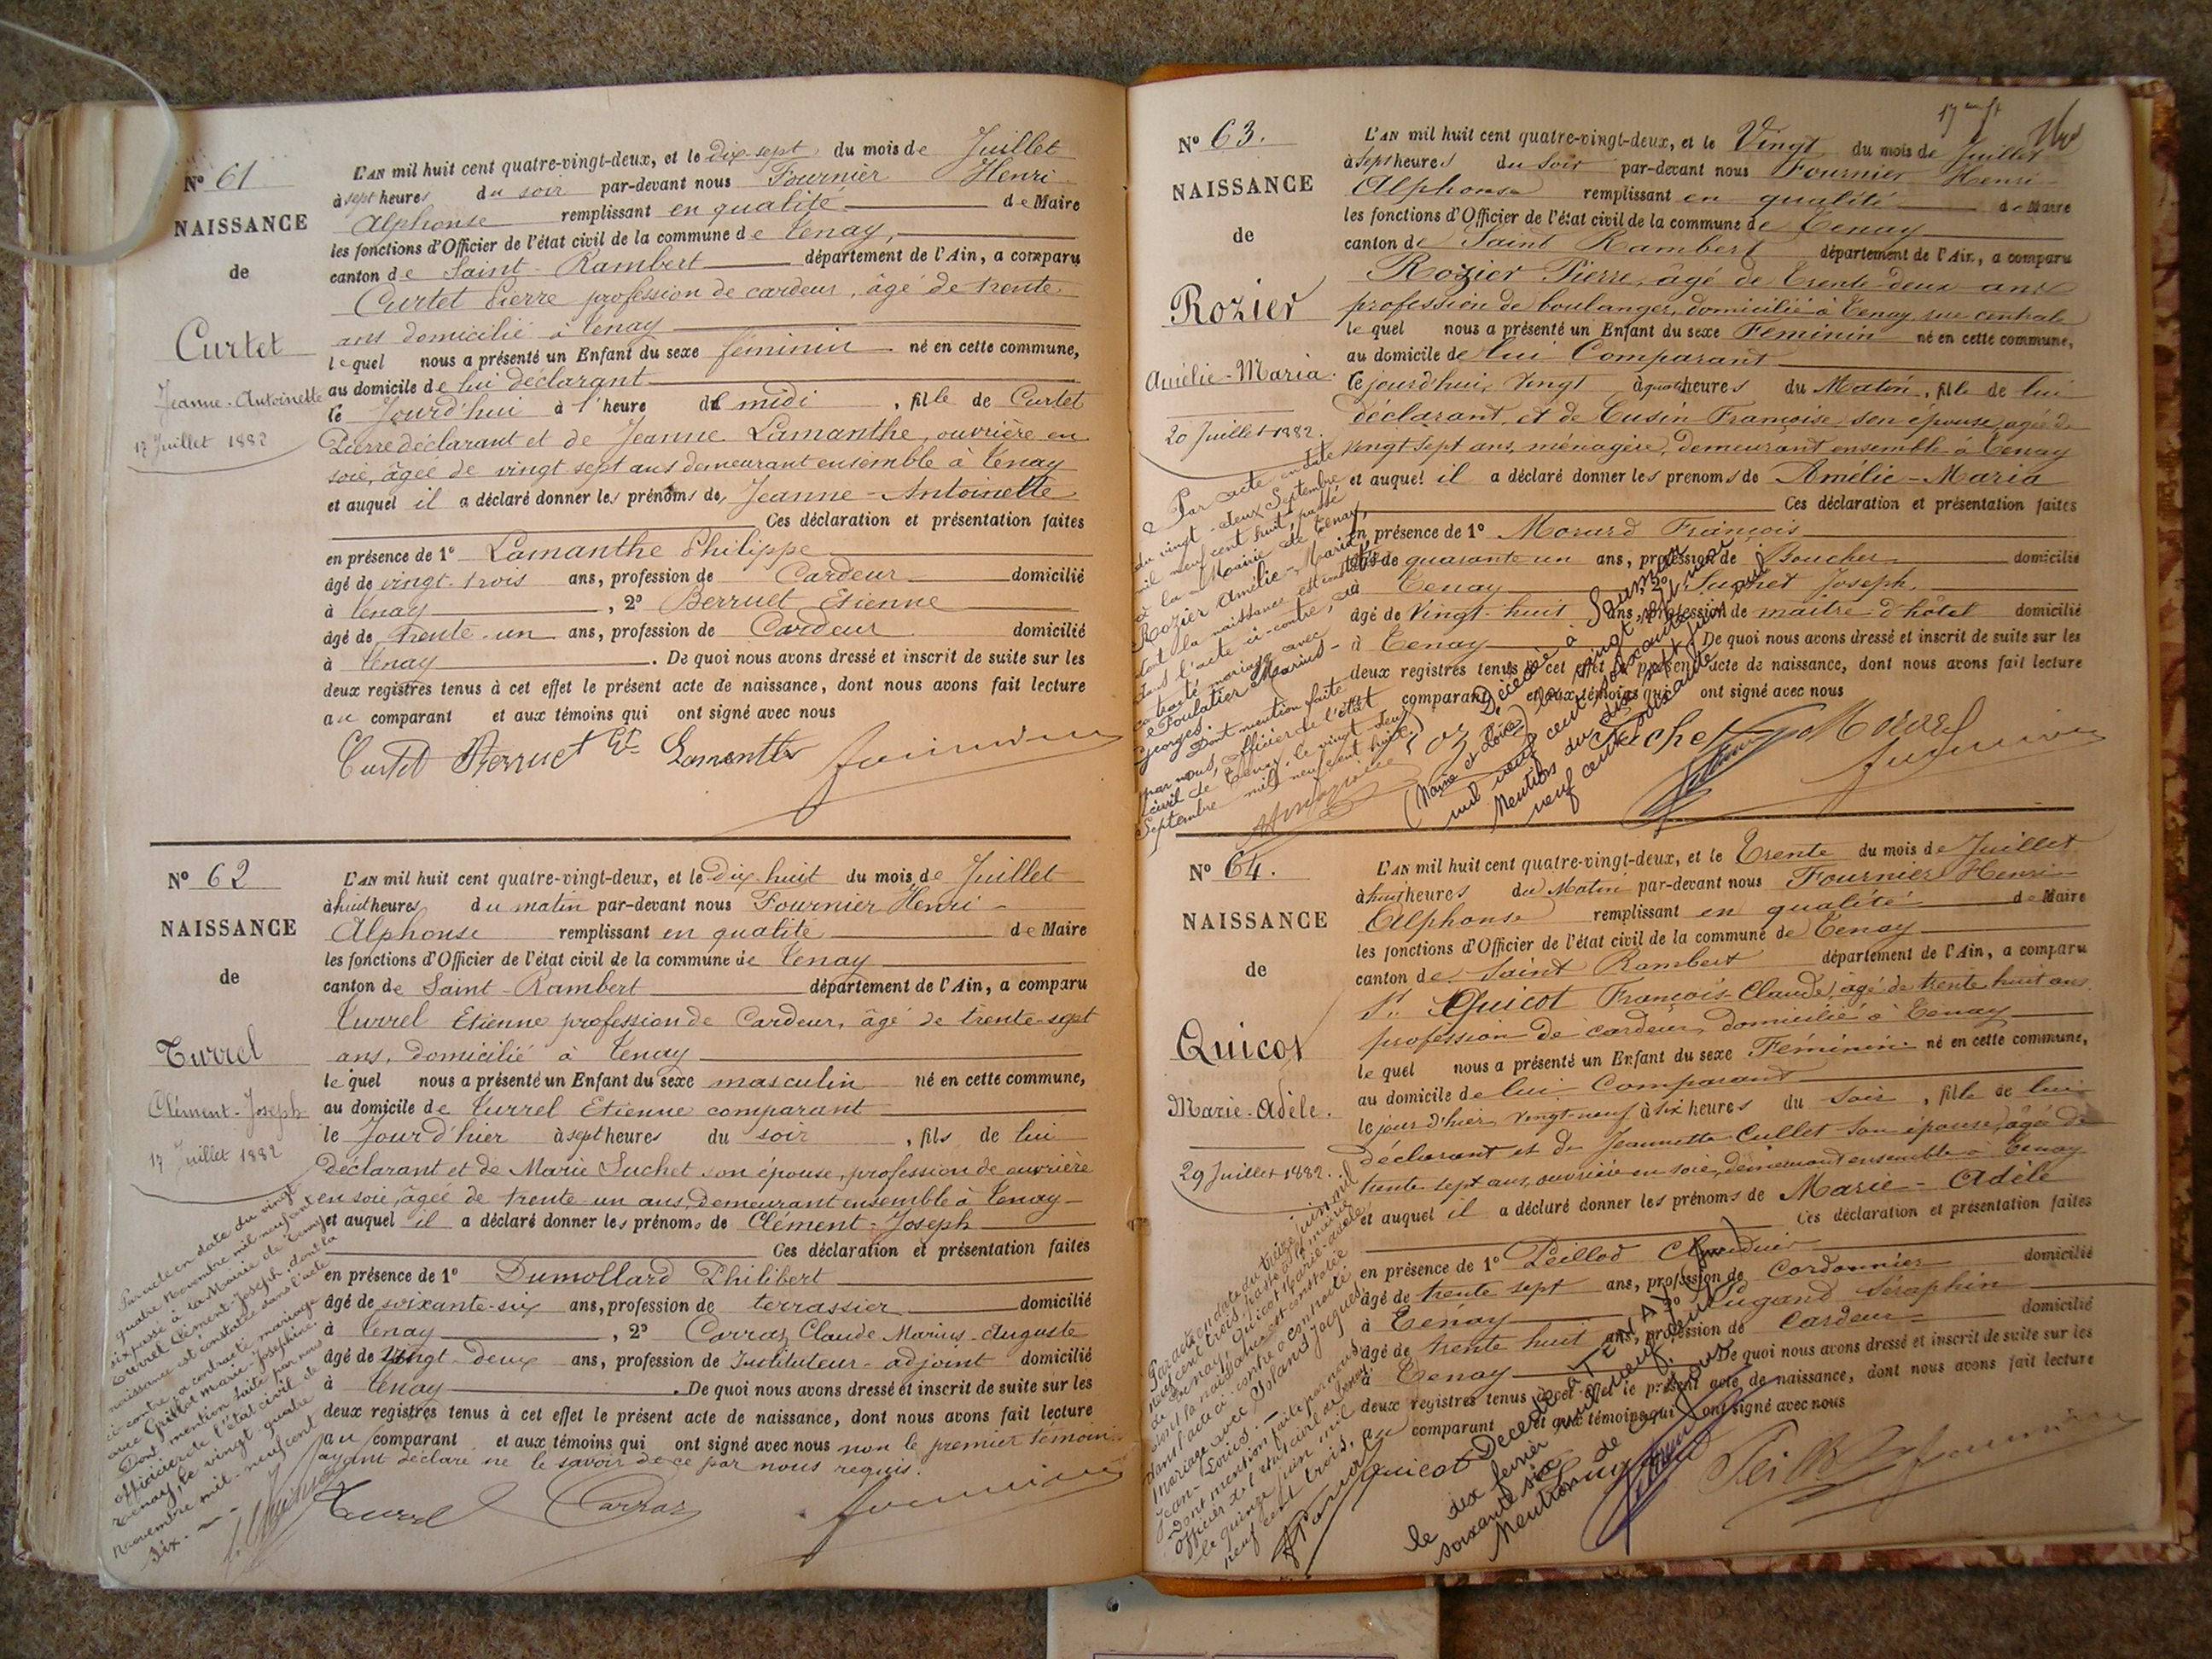 N° 61
NAISSANCE
de
Curtet
Jeanne-Antoinette
17 Juillet 1882
L'AN mil huit cent quatre-vingt-deux, et le dix-sept du mois de Juillet
à sept heures du soir par-devant nous Fournier Henri
Alphonse remplissant en qualité de Maire
les fonctions d'Officier de l'état civil de la commune de Tenay,
canton de Saint-Rambert département de l'Ain, a comparu
Curtet Pierre profession de cardeur, âgé de trente
ans domicilié à Tenay
lequel nous a présenté un Enfant du sexe féminin né en cette commune,
au domicile de lui déclarant
le Jourd'hui à l'heure de midi, fille de Curtet
Pierre déclarant et de Jeanne Lamanthe, ouvrière en
soie, âgée de vingt sept ans demeurant ensemble à Tenay
et auquel il a déclaré donner les prénoms de Jeanne-Antoinette
Ces déclaration et présentation faites
en présence de 1° Lamanthe Philippe
âgé de vingt-trois ans, profession de Cardeur domicilié
à Tenay, 2° Berruet Etienne
âgé de trente-un ans, profession de Cardeur domicilié
à Tenay. De quoi nous avons dressé et inscrit de suite sur les
deux registres tenus à cet effet le présent acte de naissance, dont nous avons fait lecture
au comparant et aux témoins qui ont signé avec nous
Curtet Berruet Et. Lamanthe Fournier
N° 62
NAISSANCE
de
Turrel
Clément-Joseph
17 Juillet 1882
Par acte en date du vingt
quatre Novembre mil neuf cent
six passé à la Mairie de Tenay
Turrel Clément-Joseph, dont la
naissance est constatée dans l'acte
ci-contre, a contracté mariage
avec Grillot Marie-Joséphine.
Dont mention faite par nous
officier de l'état civil de
Tenay, le vingt quatre
Novembre mil neuf cent
six.
L'AN mil huit cent quatre-vingt-deux, et le dix-huit du mois de Juillet
à huit heures du matin par-devant nous Fournier Henri-
Alphonse remplissant en qualité de Maire
les fonctions d'Officier de l'état civil de la commune de Tenay
canton de Saint-Rambert département de l'Ain, a comparu
Turrel Etienne profession de Cardeur, âgé de trente-sept
ans, domicilié à Tenay
lequel nous a présenté un Enfant du sexe masculin né en cette commune,
au domicile de Turrel Etienne comparant
le Jour d'hier à sept heures du soir, fils de lui
déclarant et de Marie Suchet son épouse, profession de ouvrière
en soie, âgée de trente-un ans, demeurant ensemble à Tenay
et auquel il a déclaré donner les prénoms de Clément-Joseph
Ces déclaration et présentation faites
en présence de 1° Dumollard Philibert
âgé de soixante-six ans, profession de terrassier domicilié
à Tenay, 2° Carraz Claude Marius-Auguste
âgé de vingt-deux ans, profession de Instituteur-adjoint domicilié
à Tenay. De quoi nous avons dressé et inscrit de suite sur les
deux registres tenus à cet effet le présent acte de naissance, dont nous avons fait lecture
au comparant et aux témoins qui ont signé avec nous non le premier témoin
ayant déclaré ne le savoir de ce par nous requis.
Turrel Carraz Fournier
N° 63.
NAISSANCE
de
Rozier
Amélie-Maria.
20 Juillet 1882.
Par acte en date
du vingt-deux Septembre
mil neuf cent huit, passé
à la Mairie de Tenay,
Rozier Amélie-Maria,
dont la naissance est constatée
dans l'acte ci-contre, a
contracté mariage avec
Foulatier Marius-
Georges.
Dont mention faite
par nous, officier de l'état
civil de Tenay, le vingt-deux
Septembre mil neuf cent huit.
L'AN mil huit cent quatre-vingt-deux, et le Vingt du mois de Juillet
à sept heures du soir par-devant nous Fournier Henri-
Alphonse remplissant en qualité de Maire
les fonctions d'Officier de l'état civil de la commune de Tenay
canton de Saint Rambert département de l'Ain, a comparu
Rozier Pierre, âgé de trente-deux ans
profession de boulanger, domicilié à Tenay, rue centrale
lequel nous a présenté un Enfant du sexe Féminin né en cette commune,
au domicile de lui Comparant
le jourd'hui, vingt à quatre heures du Matin, fille de lui
déclarant et de Cusin Françoise, son épouse, agée de
vingt sept ans, ménagère, demeurant ensemble à Tenay
et auquel il a déclaré donner les prénoms de Amélie-Maria
Ces déclaration et présentation faites
en présence de 1° Morard François
âgé de quarante un ans, profession de Boucher domicilié
à Tenay 2° Suchet Joseph,
âgé de Vingt-huit ans, profession de maître d'hôtel domicilié
à Tenay De quoi nous avons dressé et inscrit de suite sur les
deux registres tenus à cet effet le présent acte de naissance, dont nous avons fait lecture
comparant et aux témoins qui ont signé avec nous
Décédée à Saumur
(Maine et Loire) le vingt
mil neuf cent soixante
Mention du dix sept juin mil
neuf cent soixante
Suchet Morard Fournier
N° 64.
NAISSANCE
de
Quicot
Marie-Adèle.
29 Juillet 1882.
Par acte en date du treize juin mil
neuf cent trois, passé à la mairie
de Tenay, Quicot Marie-Adèle,
dont la naissance est constatée
dans l'acte ci-contre a contracté
mariage avec Yoland Jacques
Jean-Louis.
Dont mention faite par nous
officier de l'état civil de Tenay,
le quinze juin mil
neuf cent trois.
L'AN mil huit cent quatre-vingt-deux, et le Trente du mois de Juillet
à huit heures du Matin par-devant nous Fournier Henri-
Alphonse remplissant en qualité de Maire
les fonctions d'Officier de l'état civil de la commune de Tenay
canton de Saint Rambert département de l'Ain, a comparu
Sr. Quicot François-Claude, âgé de trente huit ans
profession de cardeur, domicilié à Tenay
lequel nous a présenté un Enfant du sexe Féminin né en cette commune,
au domicile de lui Comparant
le jour d'hier vingt-neuf à six heures du Soir, fille de lui
déclarant et de Jeannette Cullet son épouse, âgée de
trente sept ans, ouvrière en soie, demeurant ensemble à Tenay
et auquel il a déclaré donner les prénoms de Marie-Adèle
Ces déclaration et présentation faites
en présence de 1° Peillod Claudius
âgé de trente sept ans, profession de Cordonnier domicilié
à Tenay 2° Pugand Séraphin
âgé de trente huit ans, profession de Cardeur domicilié
à Tenay De quoi nous avons dressé et inscrit de suite sur les
deux registres tenus à cet effet le présent acte de naissance, dont nous avons fait lecture
au comparant et aux témoins qui ont signé avec nous
Décédée à TENAY (Ain)
le dix février mil neuf cent
soixante six.
Mention de ce jour
Quicot Peillod Fournier